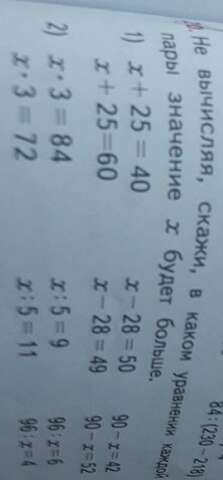 84:(230-218)
20. Не вычисляя, скажи, в каком уравнении каждой
пары значение x будет больше.
1) x+25=40 x-28=50 90-x=42
x+25=60 x-28=49 90-x=52
2) x·3=84 x:5=9 96:x=6
x·3=72 x:5=11 96:x=4